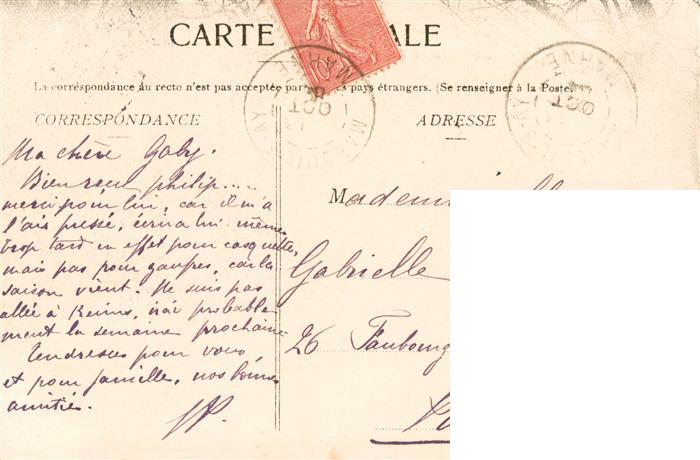 CARTE ALE
La correspondance du recto n'est pas acceptée par pays étrangers. (Se renseigner à la Poste.)
CORRESPONDANCE
ADRESSE
MAREUIL-AY
MARNE
OCT
MAREUIL-AY
MARNE
OCT
Ma chère Gaby.
Bien reçu philip....
merci pour lui, car il m'a
l'air pressé, écrira lui-même
trop tard en effet pour casquettes
mais pas pour gaufres, car la
saison vient. Ne suis pas
allée à Reims, irai probable
ment la semaine prochaine
Tendresses pour vous,
et pour famille, nos bonnes
amitiés.
Mademoiselle
Gabrielle
26 Faubourg